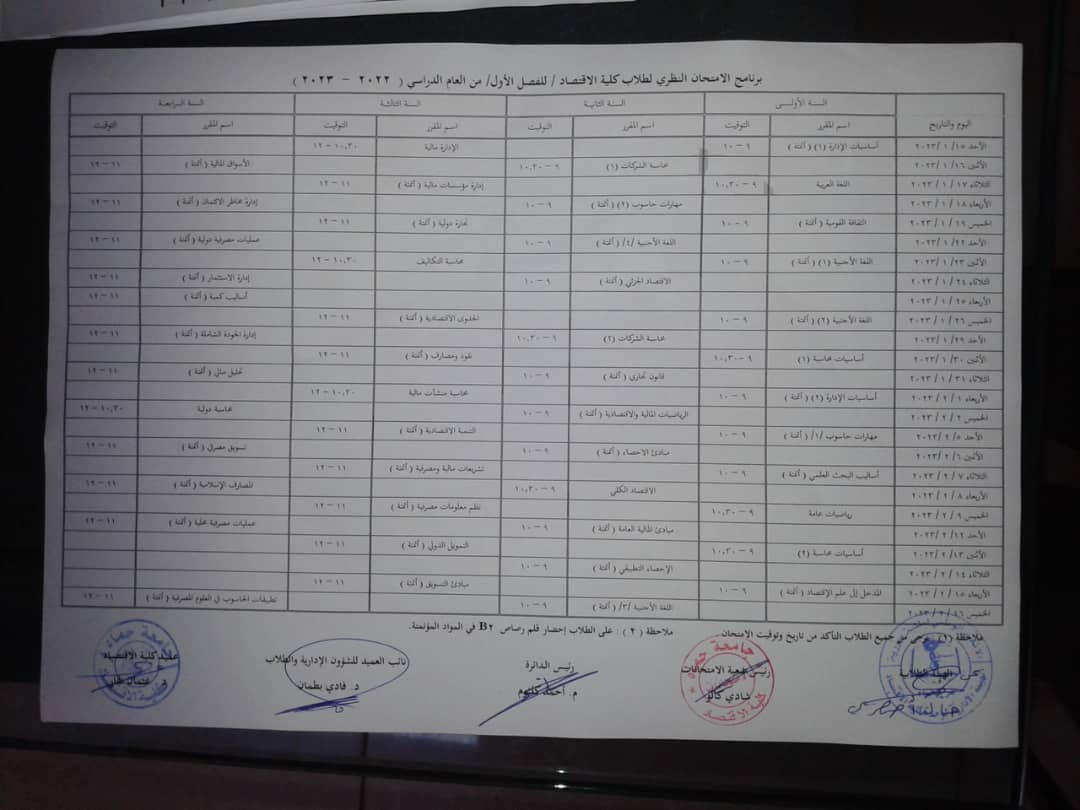 برنامج الامتحان النظري لطلاب كلية الاقتصاد / للفصل الأول/ من العام الدراسي ( ٢٠٢٢ - ٢٠٢٣ )
اليوم والتاريخ السنة الأولى السنة الثانية السنة الثالثة السنة الرابعة
اسم المقرر التوقيت اسم المقرر التوقيت اسم المقرر التوقيت اسم المقرر التوقيت
الأحد ١٥/ ١ /٢٠٢٣ أساسيات الإدارة (١) ( أتمتة ) ٩ - ١٠ الإدارة مالية ١٠,٣٠ - ١٢
الأثنين ١٦/ ١ /٢٠٢٣ محاسبة الشركات (١) ٩ - ١٠,٣٠ الأسواق المالية ( أتمتة ) ١١ - ١٢
الثلاثاء ١٧ / ١ / ٢٠٢٣ اللغة العربية ٩ - ١٠,٣٠ إدارة مؤسسات مالية ( أتمتة ) ١١ - ١٢
الأربعاء ١٨ / ١ / ٢٠٢٣ مهارات حاسوب (٢) ( أتمتة ) ٩ - ١٠ إدارة مخاطر الائتمان ( أتمتة ) ١١ - ١٢
الخميس ١٩ / ١ / ٢٠٢٣ الثقافة القومية ( أتمتة ) ٩ - ١٠ تجارة دولية ( أتمتة ) ١١ - ١٢
الأحد ٢٢/ ١ /٢٠٢٣ اللغة الأجنبية /٤/ ( أتمتة ) ٩ - ١٠ عمليات مصرفية دولية ( أتمتة ) ١١ - ١٢
الأثنين ٢٣/ ١ /٢٠٢٣ اللغة الأجنبية (١) ( أتمتة ) ٩ - ١٠ محاسبة التكاليف ١٠,٣٠ - ١٢
الثلاثاء ٢٤ / ١ / ٢٠٢٣ الاقتصاد الجزئي ( أتمتة ) ٩ - ١٠ إدارة الاستثمار ( أتمتة ) ١١ - ١٢
الأربعاء ٢٥ / ١ / ٢٠٢٣ أساليب كمية ( أتمتة ) ١١ - ١٢
الخميس ٢٦ / ١ / ٢٠٢٣ اللغة الأجنبية (٢) ( أتمتة ) ٩ - ١٠ الجدوى الاقتصادية ( أتمتة ) ١١ - ١٢
الأحد ٢٩/ ١ /٢٠٢٣ محاسبة الشركات (٢) ٩ - ١٠,٣٠ إدارة الجودة الشاملة ( أتمتة ) ١١ - ١٢
الأثنين ٣٠/ ١ /٢٠٢٣ أساسيات محاسبة (١) ٩ - ١٠,٣٠ نقود ومصارف ( أتمتة ) ١١ - ١٢
الثلاثاء ٣١ / ١ / ٢٠٢٣ قانون تجاري ( أتمتة ) ٩ - ١٠ تحليل مالي ( أتمتة ) ١١ - ١٢
الأربعاء ١ / ٢ / ٢٠٢٣ أساسيات الإدارة (٢) ( أتمتة ) ٩ - ١٠ محاسبة منشآت مالية ١٠,٣٠ - ١٢
الخميس ٢ / ٢ / ٢٠٢٣ الرياضيات المالية والاقتصادية ( أتمتة ) ٩ - ١٠ محاسبة دولية ١٠,٣٠ - ١٢
الأحد ٥/ ٢ /٢٠٢٣ مهارات حاسوب /١/ ( أتمتة ) ٩ - ١٠ التنمية الاقتصادية ( أتمتة ) ١١ - ١٢
الأثنين ٦/ ٢ /٢٠٢٣ مبادئ الاحصاء ( أتمتة ) ٩ - ١٠ تسويق مصرفي ( أتمتة ) ١١ - ١٢
الثلاثاء ٧ / ٢ / ٢٠٢٣ أساليب البحث العلمي ( أتمتة ) ٩ - ١٠ تشريعات مالية ومصرفية ( أتمتة ) ١١ - ١٢
الأربعاء ٨ / ٢ / ٢٠٢٣ الاقتصاد الكلي ٩ - ١٠,٣٠ المصارف الإسلامية ( أتمتة ) ١١ - ١٢
الخميس ٩ / ٢ / ٢٠٢٣ رياضيات عامة ٩ - ١٠,٣٠ نظم معلومات مصرفية ( أتمتة ) ١١ - ١٢
الأحد ١٢/ ٢ /٢٠٢٣ مبادئ المالية العامة ( أتمتة ) ٩ - ١٠ عمليات مصرفية محلية ( أتمتة ) ١١ - ١٢
الأثنين ١٣/ ٢ /٢٠٢٣ أساسيات محاسبة (٢) ٩ - ١٠,٣٠ التمويل الدولي ( أتمتة ) ١١ - ١٢
الثلاثاء ١٤ / ٢ / ٢٠٢٣ الإحصاء التطبيقي ( أتمتة ) ٩ - ١٠
الأربعاء ١٥ / ٢ / ٢٠٢٣ المدخل إلى علم الإقتصاد ( أتمتة ) ٩ - ١٠ مبادئ التسويق ( أتمتة ) ١١ - ١٢
الخميس ١٦ / ٢ / ٢٠٢٣ اللغة الأجنبية /٣/ ( أتمتة ) ٩ - ١٠ تطبيقات الحاسوب في العلوم المصرفية ( أتمتة ) ١١ - ١٢
ملاحظة (١) يرجى من جميع الطلاب التأكد من تاريخ وتوقيت الامتحان ملاحظة ( ٢ ) : على الطلاب إحضار قلم رصاص B٢ في المواد المؤتمتة.
الهيئة الطلابية رئيس شعبة الامتحانات رئيس الدائرة نائب العميد للشؤون الإدارية والطلاب عميد كلية الاقتصاد
شادي كالو م. أحمد د. فادي بطمان د. عثمان
جامعة حماة
كلية الاقتصاد
جامعة حماة
كلية الاقتصاد